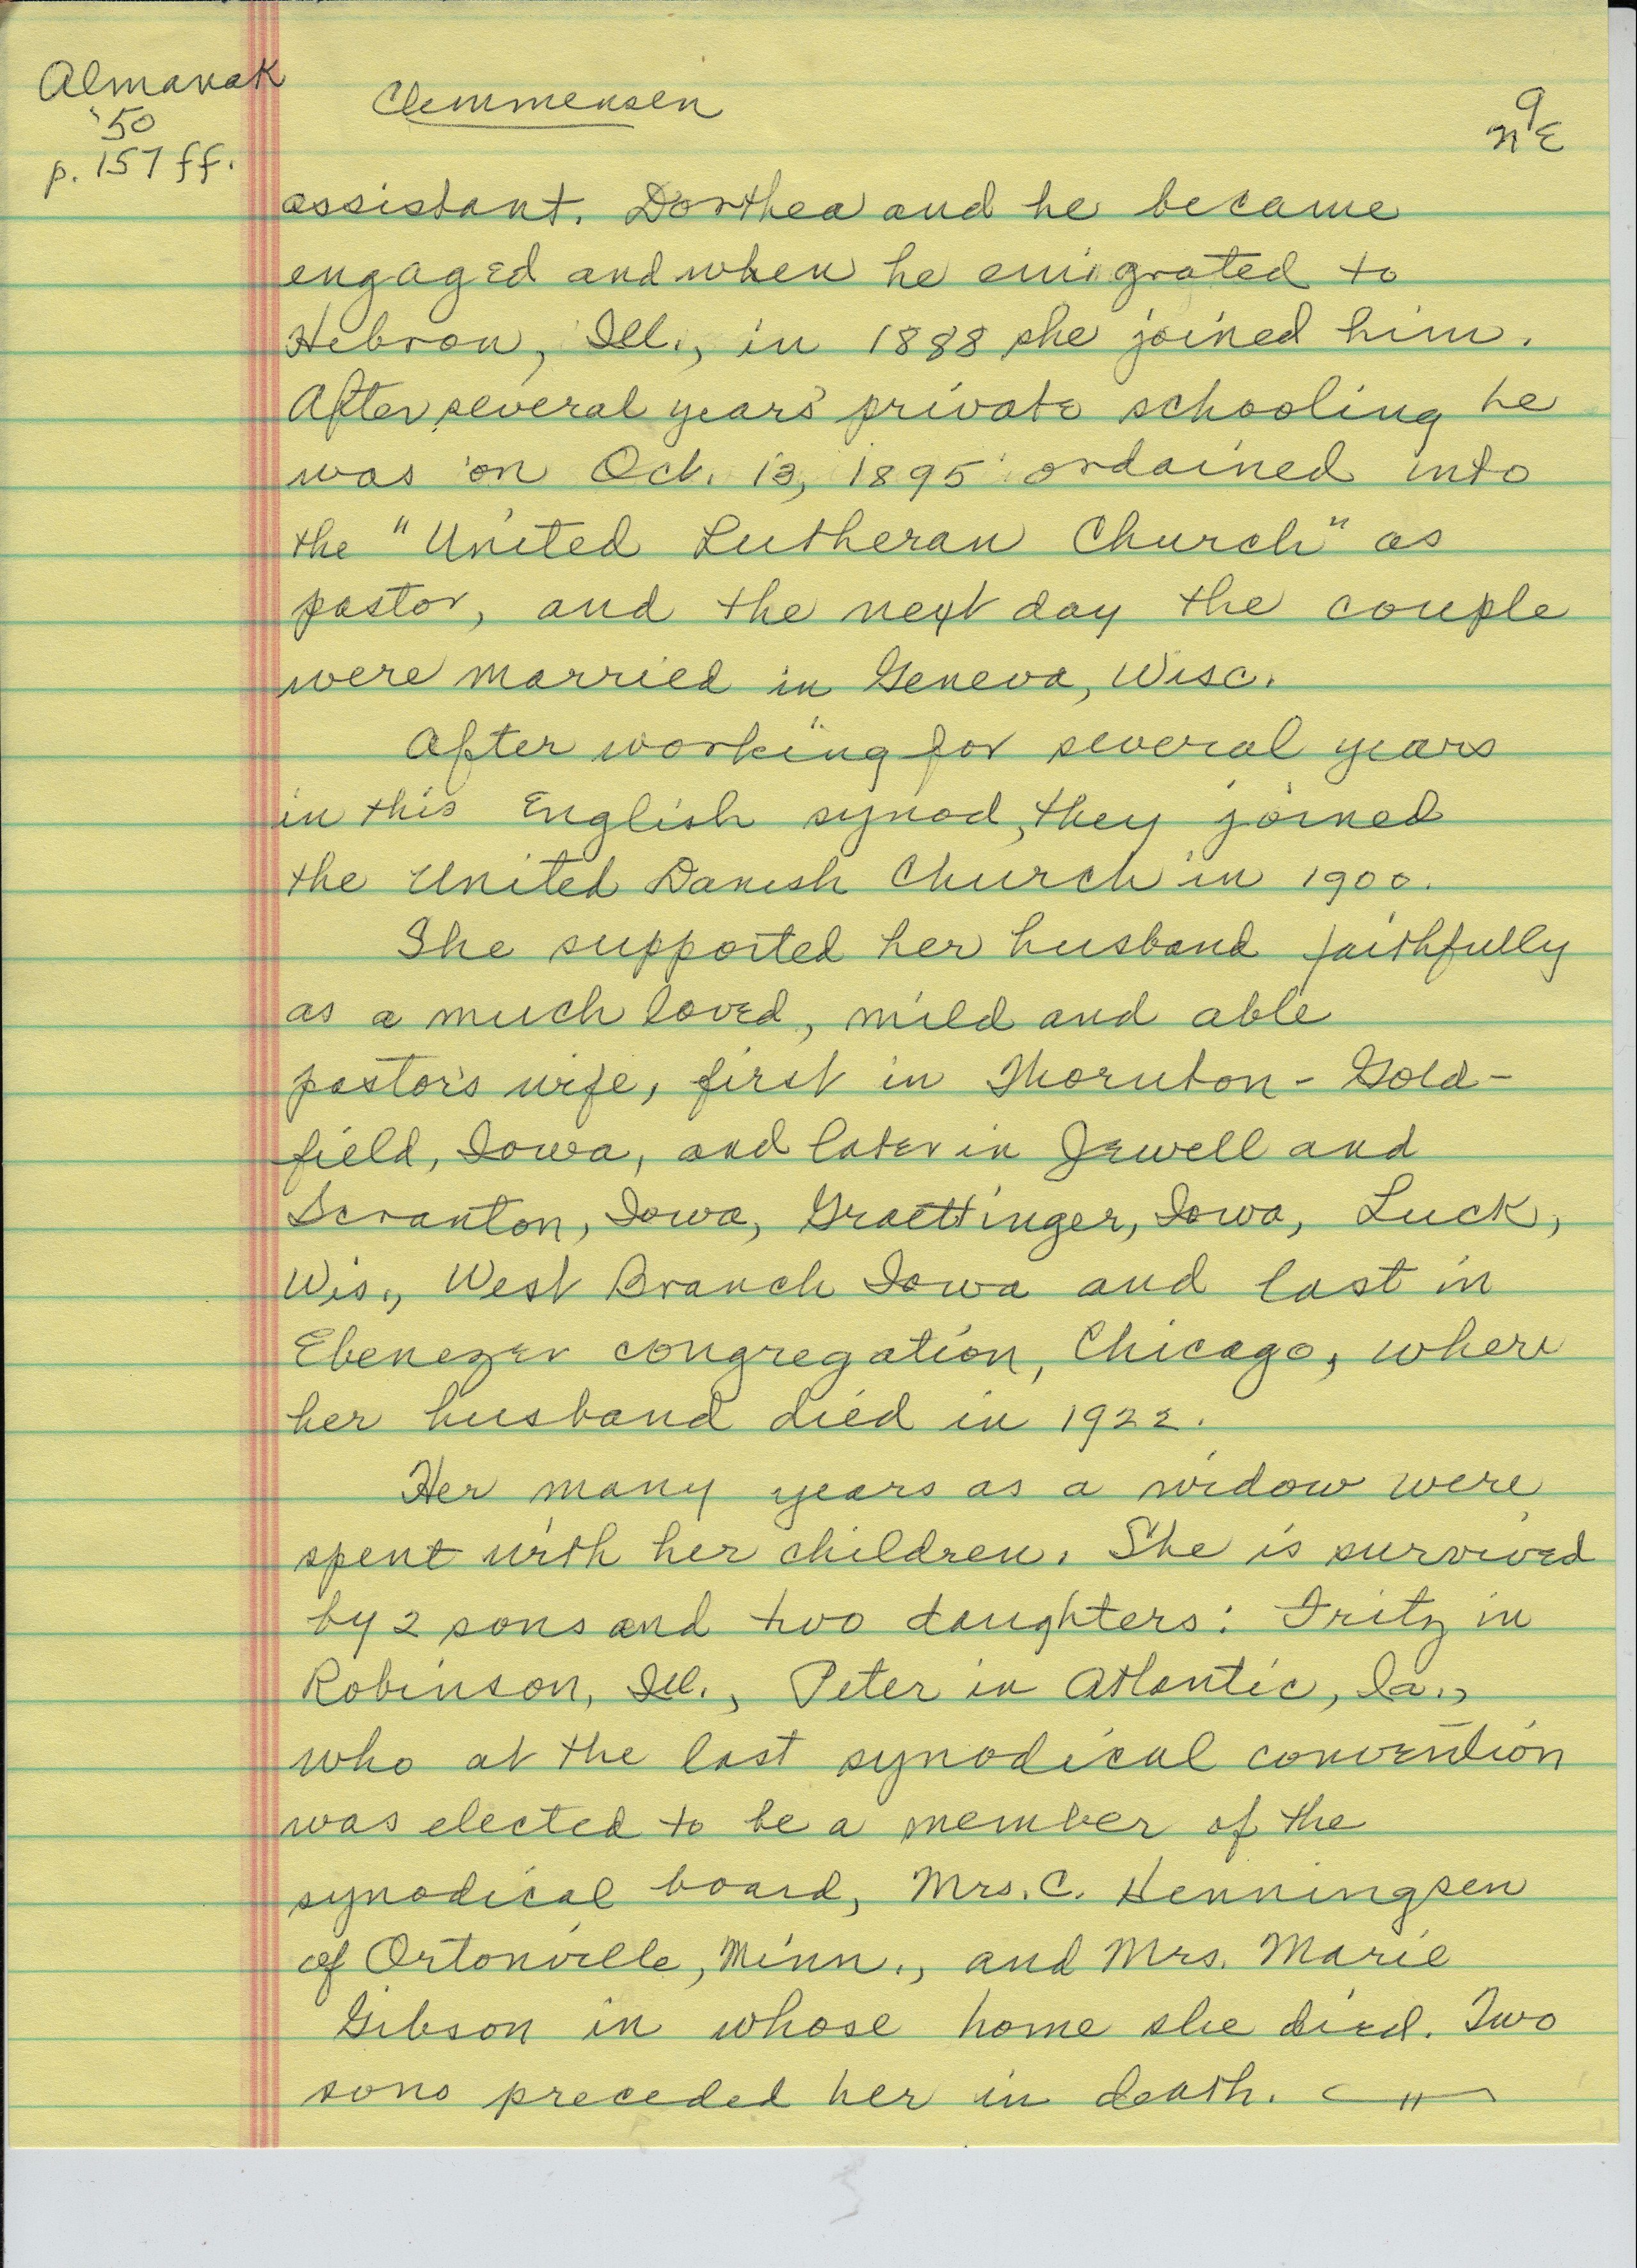 Almanak
'50
p. 157 ff.
Clemmensen
9
NE
assistant. Dorthea and he became
engaged and when he emigrated to
Hebron, Ill., in 1888 she joined him.
After several years' private schooling he
was on Oct. 13, 1895 ordained into
the "United Lutheran Church" as
pastor, and the next day the couple
were married in Geneva, Wisc.
After working for several years
in this English synod, they joined
the United Danish Church in 1900.
She supported her husband faithfully
as a much loved, mild and able
pastor's wife, first in Thornton - Gold-
field, Iowa, and later in Jewell and
Scranton, Iowa, Graettinger, Iowa, Luck,
Wis., West Branch Iowa and last in
Ebenezer congregation, Chicago, where
her husband died in 1922.
Her many years as a widow were
spent with her children. She is survived
by 2 sons and two daughters: Fritz in
Robinson, Ill., Peter in Atlantic, Ia.,
who at the last synodical convention
was elected to be a member of the
synodical board, Mrs. C. Henningsen
of Ortonville, Minn., and Mrs. Marie
Gibson in whose home she died. Two
sons preceded her in death.